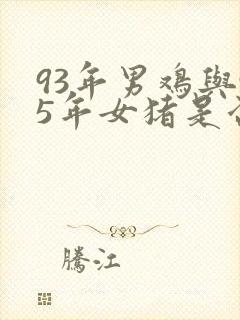 93年男鸡與
5年女猪是
騰江